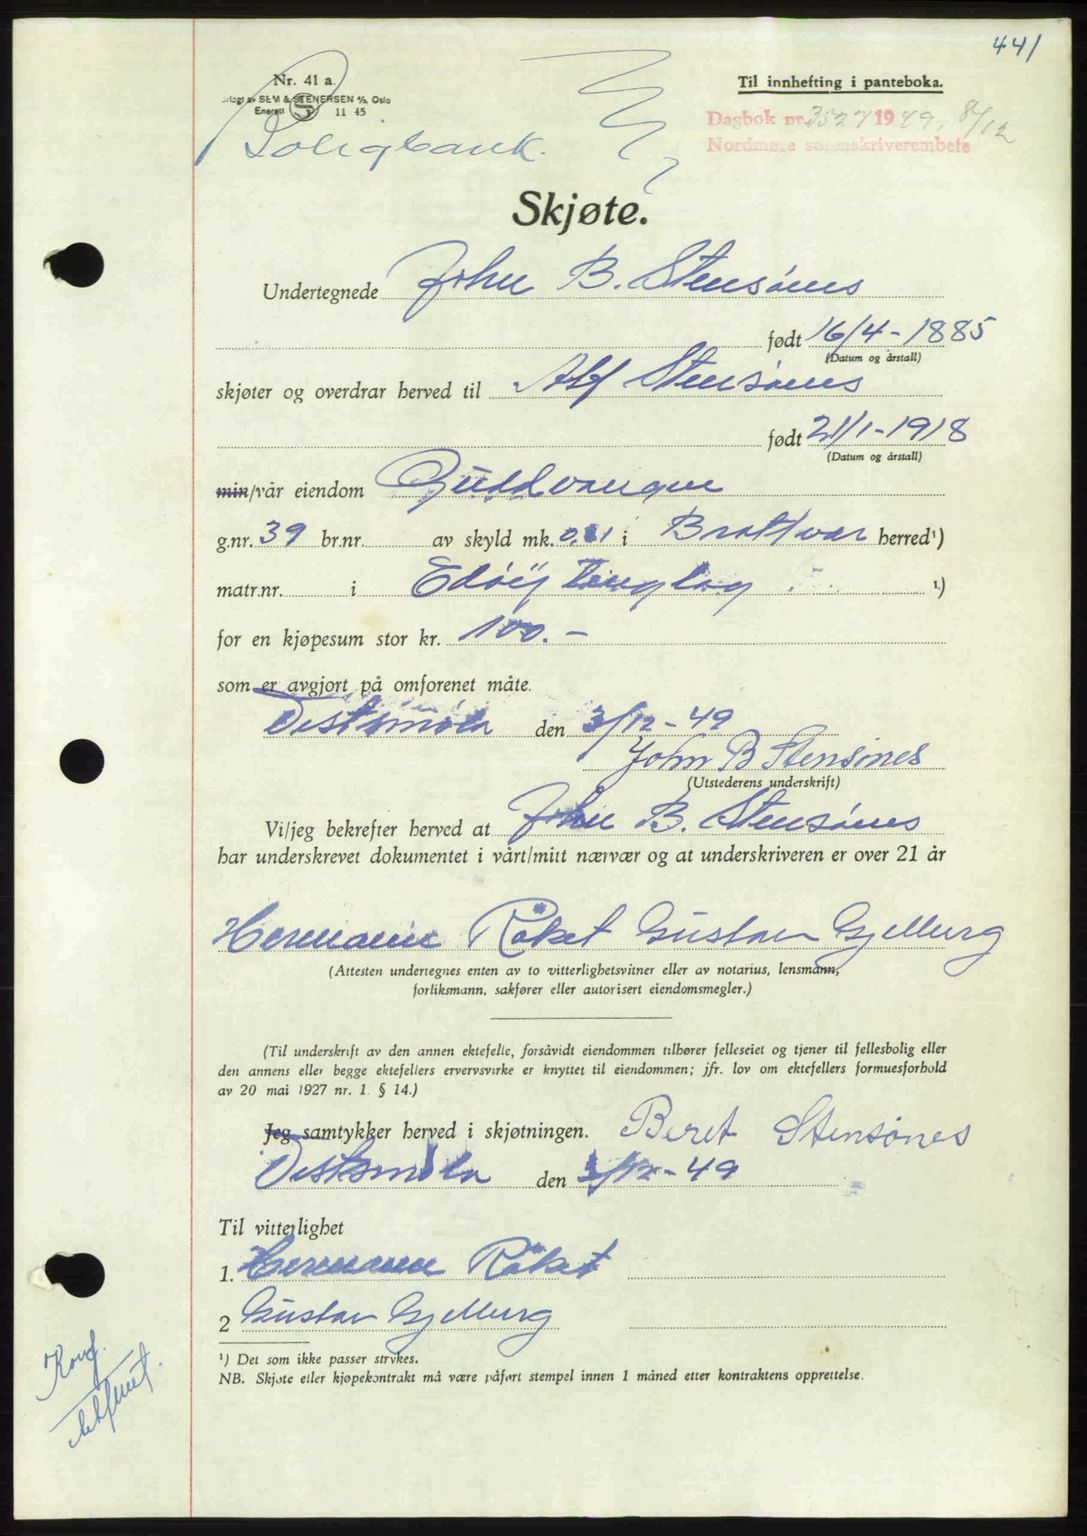 441
Nr. 41 a.
Til innhefting i panteboka.
SEM & STENERSEN A/S, Oslo
Enerett S 11 45
Dagbok nr. 3527 1949, 8/12
Nordmøre sorenskriverembete
Boligbank.
Skjøte.
Undertegnede John B. Stensønes
født 16/4-1885
(Datum og årstall)
skjøter og overdrar herved til Alf Stensønes
født 21/1-1918
(Datum og årstall)
min/vår eiendom
g.nr. 39 br.nr. av skyld mk. i Brattvær herred¹)
matr.nr. i Edøy Tinglag ¹)
for en kjøpesum stor kr. 100.-
som er avgjort på omforenet måte.
Vestsmøla den 3/12-49
John B Stensønes
(Utstederens underskrift)
Vi/jeg bekrefter herved at John B. Stensønes
har underskrevet dokumentet i vårt/mitt nærvær og at underskriveren er over 21 år
Hermann Røket Gustav Gjelberg
(Attesten undertegnes enten av to vitterlighetsvitner eller av notarius, lensmann,
forliksmann, sakfører eller autorisert eiendomsmegler.)
(Til underskrift av den annen ektefelle, forsåvidt eiendommen tilhører felleseiet og tjener til fellesbolig eller
den annens eller begge ektefellers ervervsvirke er knyttet til eiendommen; jfr. lov om ektefellers formuesforhold
av 20 mai 1927 nr. 1. § 14.)
Jeg samtykker herved i skjøtningen. Beret Stensønes
Vestsmøla den 3/12-49
Til vitterlighet
1. Hermann Røket
2 Gustav Gjelberg
¹) Det som ikke passer strykes.
NB. Skjøte eller kjøpekontrakt må være påført stempel innen 1 måned etter kontraktens opprettelse.
Konf.